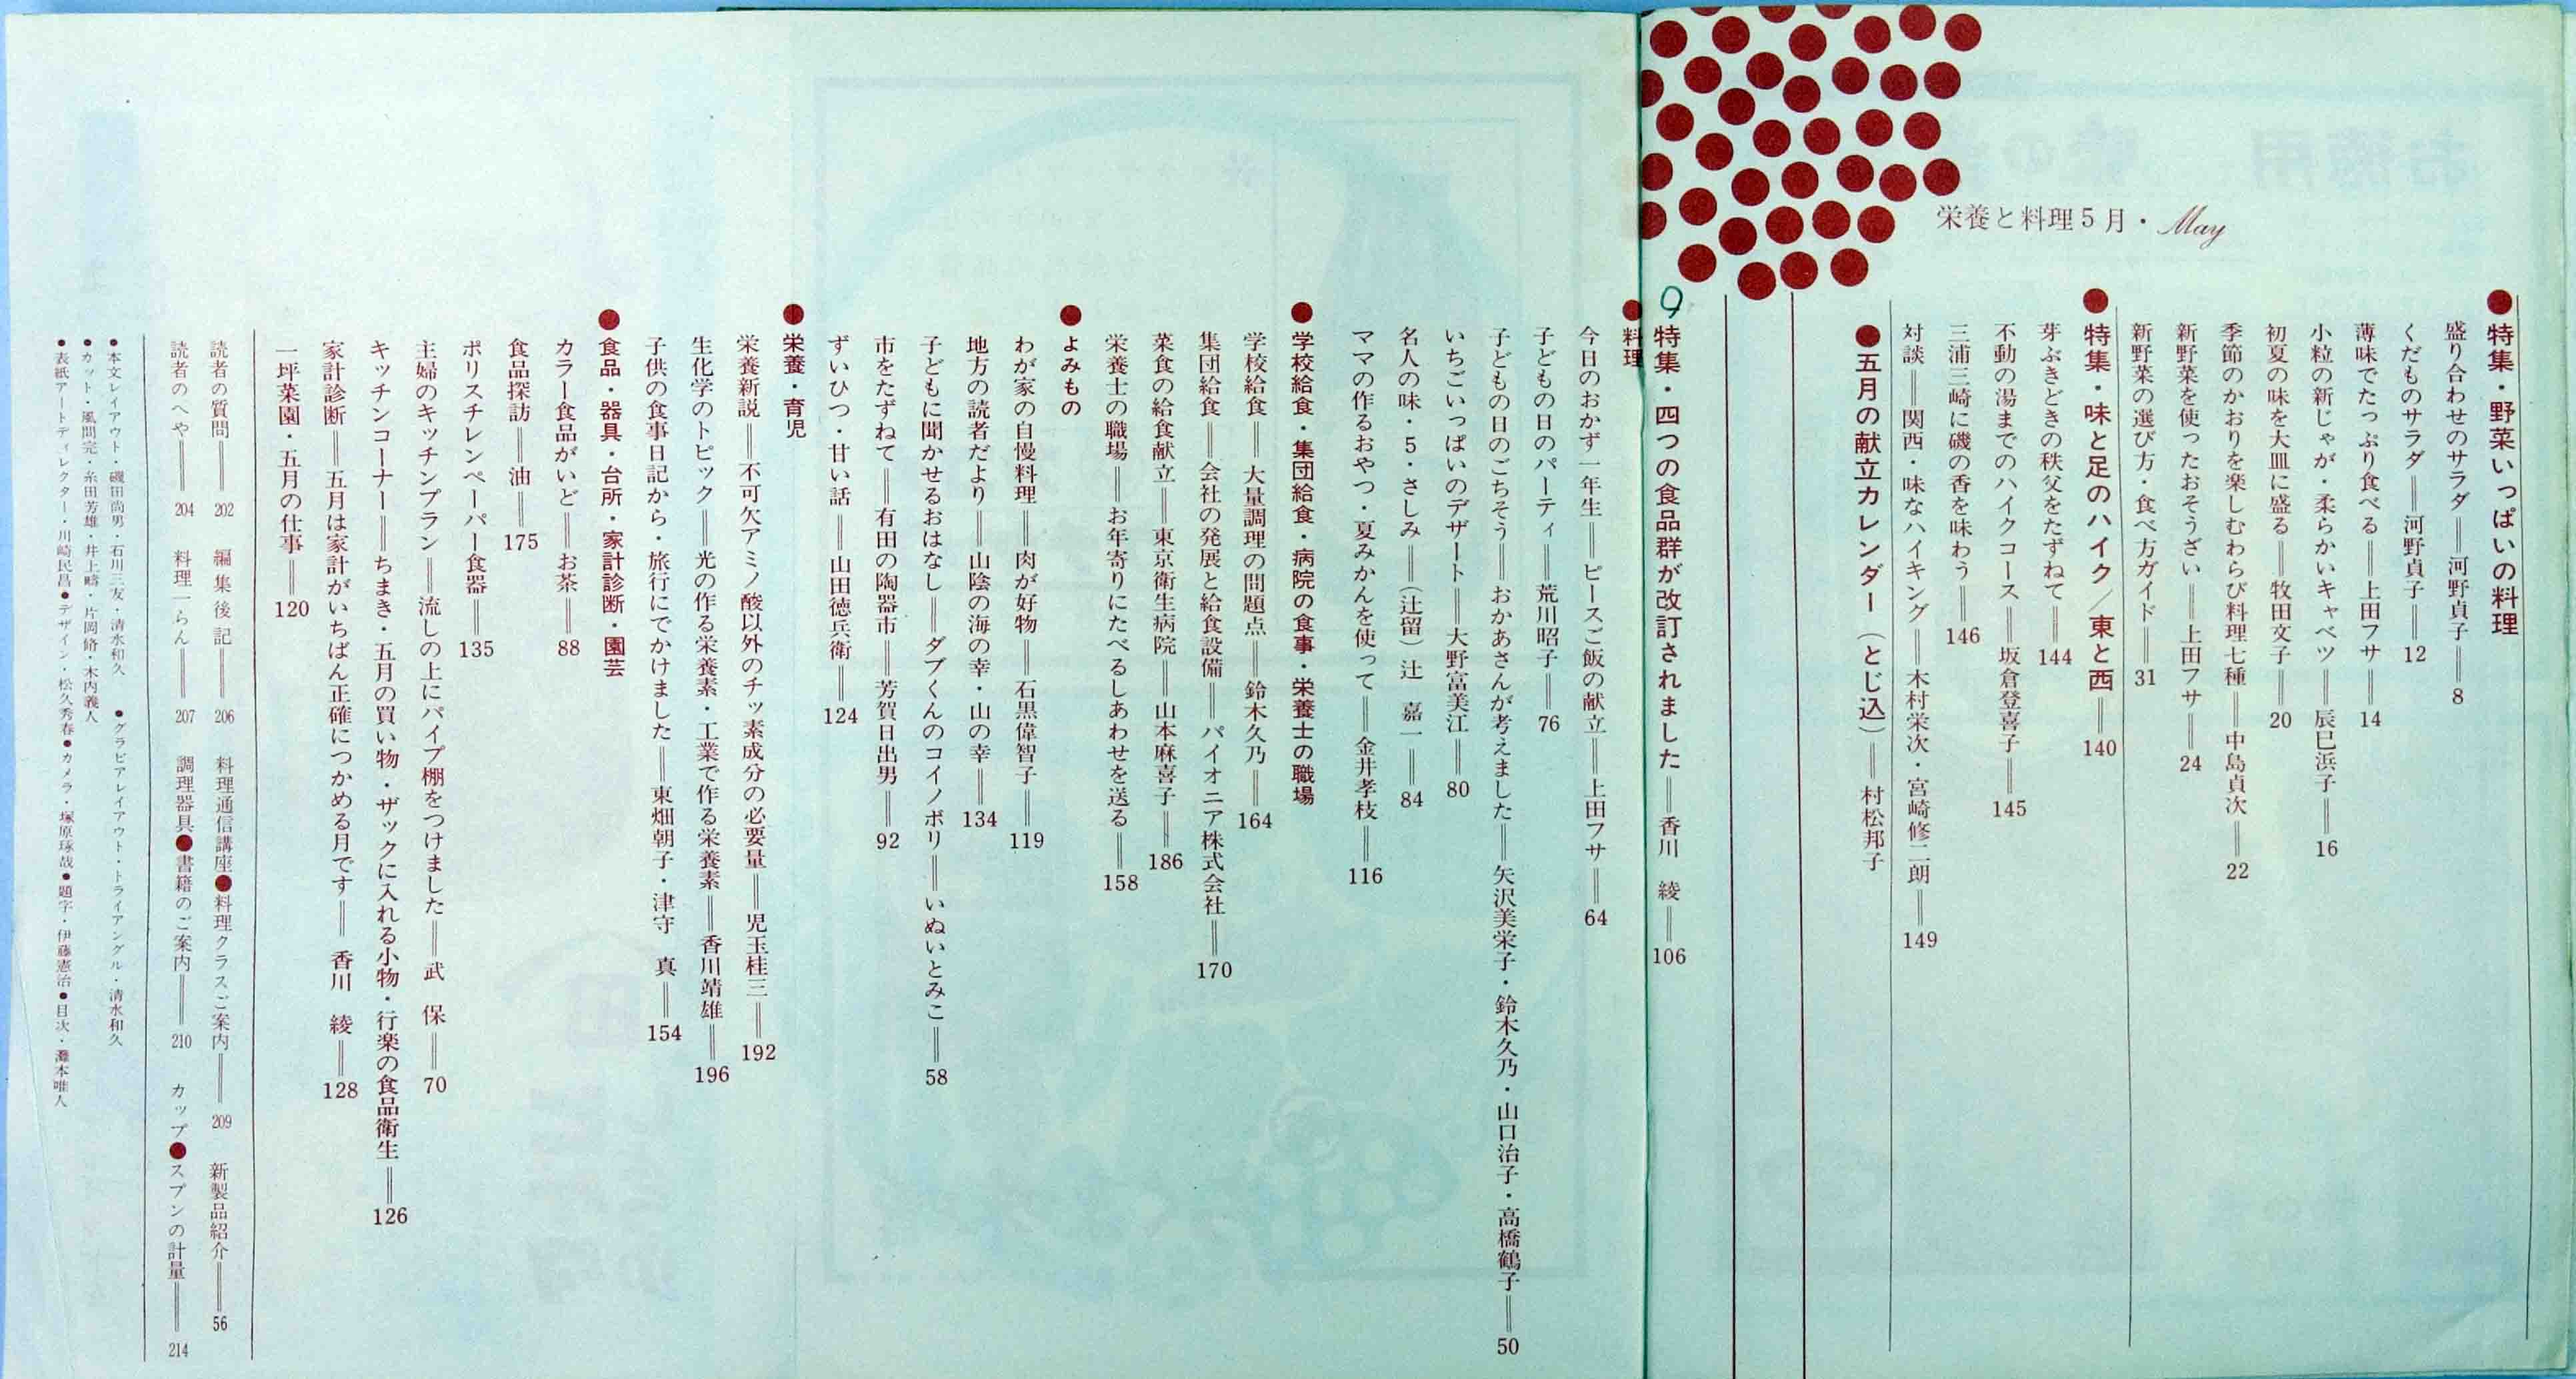 栄養と料理5月・May
●特集・野菜いっぱいの料理
盛り合わせのサラダ＝河野貞子＝8
くだものサラダ＝河野貞子＝12
薄味でたっぷり食べる＝上田フサ＝14
小粒の新じゃが・柔らかいキャベツ＝辰巳浜子＝16
初夏の味を大皿に盛る＝牧田文子＝20
季節のかおりを楽しむわらび料理七種＝中島貞次＝22
新野菜を使ったおそうざい＝上田フサ＝24
新野菜の選び方・食べ方ガイド＝31
●特集・味と足のハイク／東と西＝140
芽ぶきどきの秩父をたずねて＝144
不動の湯までのハイクコース＝坂倉登喜子＝145
三浦三崎に磯の香を味わう＝146
対談＝関西・味なハイキング＝木村栄次・宮崎修二朗＝149
●五月の献立カレンダー（とじ込）＝村松邦子
特集・四つの食品群が改訂されました＝香川 綾＝106
●料理
今日のおかず一年生＝ピースご飯の献立＝上田フサ＝64
子どもの日のパーティ＝荒川昭子＝76
子どもの日のごちそう＝おかあさんが考えました＝矢沢美栄子・鈴木久乃・山口治子・高橋鶴子＝50
いちごいっぱいのデザート＝大野富美江＝80
名人の味・5・さしみ＝（辻留）辻 嘉一＝84
ママの作るおやつ・夏みかんを使って＝金井孝枝＝116
●学校給食・集団給食・病院の食事・栄養士の職場
学校給食＝大量調理の問題点＝鈴木久乃＝164
集団給食＝会社の発展と給食設備＝パイオニア株式会社＝170
菜食の給食献立＝東京衛生病院＝山本麻喜子＝186
栄養士の職場＝お年寄りにたべるしあわせを送る＝158
●よみもの
わが家の自慢料理＝肉が好物＝石黒偉智子＝119
地方の読者だより＝山陰の海の幸・山の幸＝134
子どもに聞かせるおはなし＝ダブくんのコイノボリ＝いぬいとみこ＝58
市をたずねて＝有田の陶器市＝芳賀日出男＝92
ずいひつ・甘い話＝山田徳兵衛＝124
●栄養・育児
栄養新説＝不可欠アミノ酸以外のチッ素成分の必要量＝児玉桂三＝192
生化学のトピック＝光の作る栄養素・工業で作る栄養素＝香川靖雄＝196
子供の食事日記から・旅行にでかけました＝東畑朝子・津守 真＝154
●食品・器具・台所・家計診断・園芸
カラー食品がいど＝お茶＝88
食品探訪＝油＝175
ポリスチレンペーパー食器＝135
主婦のキッチンプラン＝流しの上にパイプ棚をつけました＝武 保＝70
キッチンコーナー＝ちまき・五月の買い物・ザックに入れる小物・行楽の食品衛生＝126
家計診断＝五月は家計がいちばん正確につかめる月です＝香川 綾＝128
一坪菜園・五月の仕事＝120
読者の質問＝202 編集後記＝206 料理通信講座●料理クラスご案内＝209 新製品紹介＝56
読者のへや＝204 料理一らん＝207 調理器具●書籍のご案内＝210 カップ●スプンの計量＝214
●本文レイアウト・磯田尚男・石川三友・清水和久 ●グラビアレイアウト・トライアングル・清水和久
●カット・風間完・糸田芳雄・井上疇・片岡脩・木内義人
●表紙アートディレクター・川崎民昌●デザイン・松久秀春●カメラ・塚原琢哉●題字・伊藤憲治●目次・灘本唯人